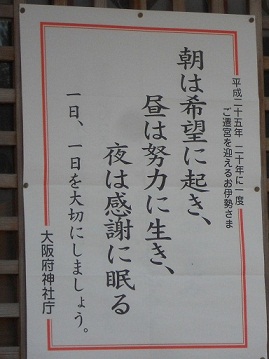 平成二十五年 二十年に一度
ご遷宮を迎えるお伊勢さま
朝は希望に起き、
昼は努力に生き、
夜は感謝に眠る
一日、一日を大切にしましょう。
大阪府神社庁